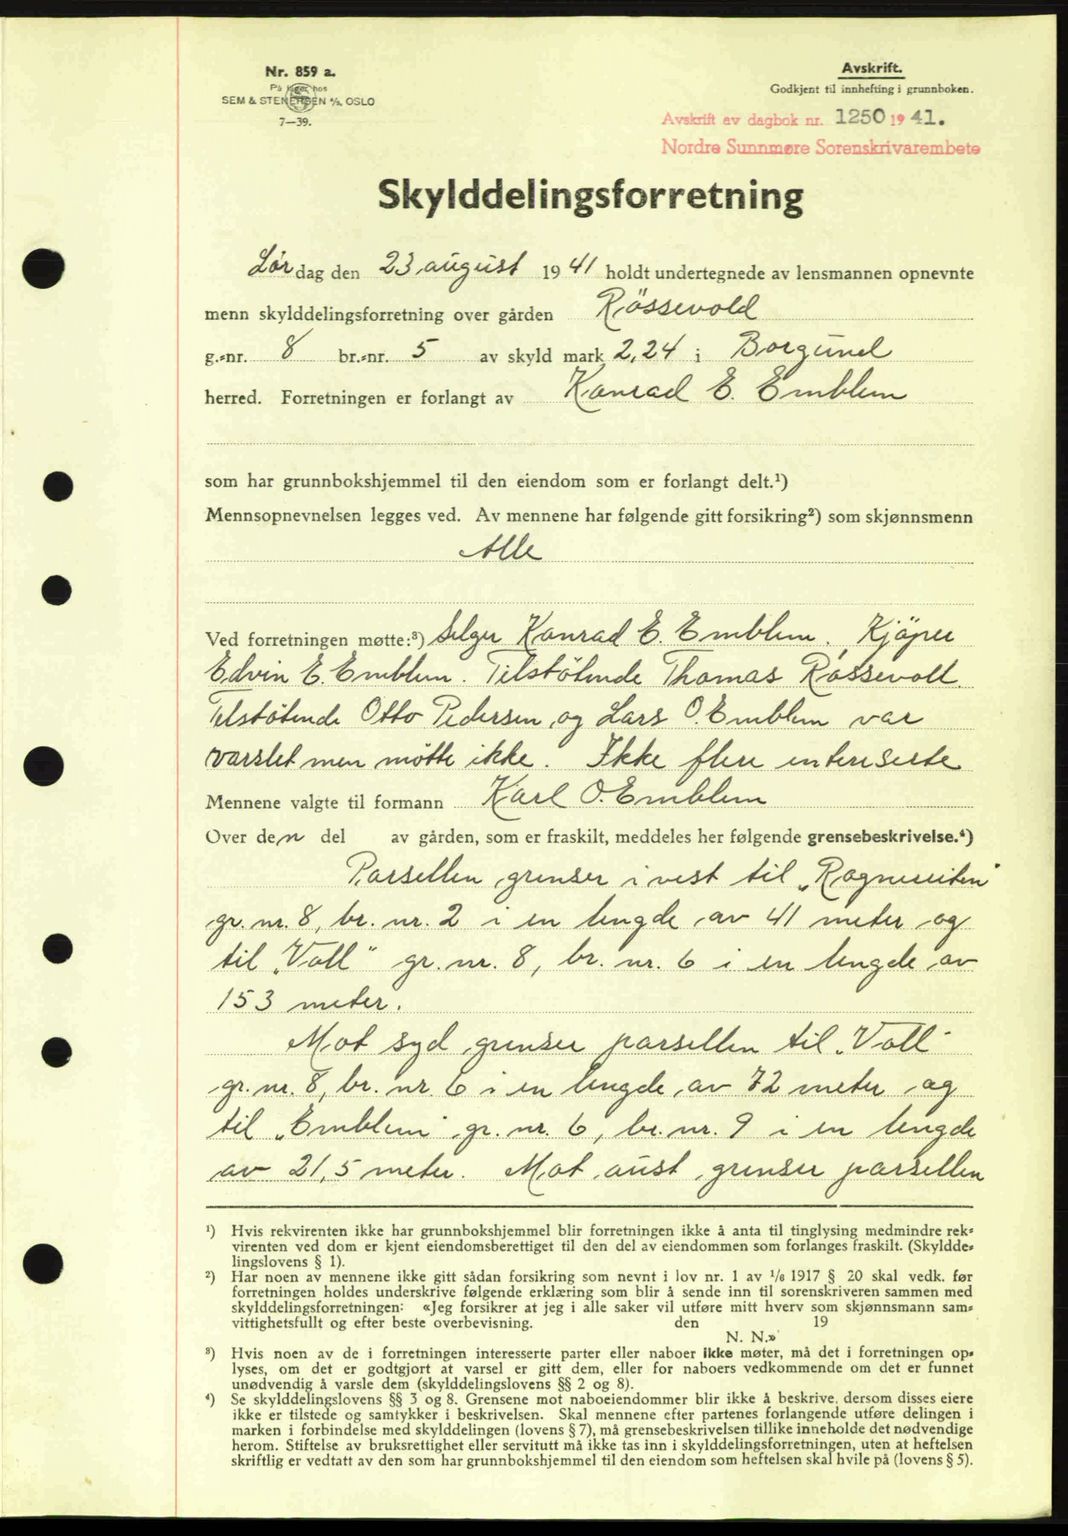 Nr. 859 a.
På lager hos
SEM & STENERSEN A/S, OSLO
7—39.
Avskrift.
Godkjent til innhefting i grunnboken.
Avskrift av dagbok nr. 1250 19 41.
Nordre Sunnmøre Sorenskrivarembete
Skylddelingsforretning
Lør dag den 23 august 19 41 holdt undertegnede av lensmannen opnevnte
menn skylddelingsforretning over gården Rössevold
g.-nr. 8 br.-nr. 5 av skyld mark 2,24 i Borgund
herred. Forretningen er forlangt av Konrad E. Emblem
som har grunnbokshjemmel til den eiendom som er forlangt delt.¹)
Mennsopnevnelsen legges ved. Av mennene har følgende gitt forsikring²) som skjønnsmenn
Alle
Ved forretningen møtte:³) Selger Konrad E. Emblem. Kjöper
Edvin E. Emblem. Tilstötende Thomas Rössevoll.
Tilstötende Otto Pedersen og Lars O. Emblem var
varslet men mötte ikke. Ikke flere interiserte
Mennene valgte til formann Karl O. Emblem
Over den del av gården, som er fraskilt, meddeles her følgende grensebeskrivelse.⁴)
Parsellen grenser i vest til „Rognereiten"
gr. nr. 8, br. nr. 2 i en lengde av 41 meter og
til „Voll" gr. nr. 8, br. nr. 6 i en lengde av
153 meter.
Mot syd grenser parsellen til „Voll"
gr. nr. 8, br. nr. 6 i en lengde av 72 meter og
til „Emblem" gr. nr. 6, br. nr. 9 i en lengde
av 21,5 meter. Mot aust grenser parsellen
¹) Hvis rekvirenten ikke har grunnbokshjemmel blir forretningen ikke å anta til tinglysing medmindre rek-
virenten ved dom er kjent eiendomsberettiget til den del av eiendommen som forlanges fraskilt. (Skyldde-
lingslovens § 1).
²) Har noen av mennene ikke gitt sådan forsikring som nevnt i lov nr. 1 av 1/6 1917 § 20 skal vedk. før
forretningen holdes underskrive følgende erklæring som blir å sende inn til sorenskriveren sammen med
skylddelingsforretningen: «Jeg forsikrer at jeg i alle saker vil utføre mitt hverv som skjønnsmann sam-
vittighetsfullt og efter beste overbevisning. den 19
N. N.»
³) Hvis noen av de i forretningen interesserte parter eller naboer ikke møter, må det i forretningen op-
lyses, om det er godtgjort at varsel er gitt dem, eller for naboers vedkommende om det er funnet
unødvendig å varsle dem (skylddelingslovens §§ 2 og 8).
⁴) Se skylddelingslovens §§ 3 og 8. Grensene mot naboeiendommer blir ikke å beskrive, dersom disses eiere
ikke er tilstede og samtykker i beskrivelsen. Skal mennene efter partenes forlangende utføre delingen i
marken i forbindelse med skylddelingen (lovens § 7), må grensebeskrivelsen tillike inneholde det nødvendige
herom. Stiftelse av bruksrettighet eller servitutt må ikke tas inn i skylddelingsforretningen, uten at heftelsen
skriftlig er vedtatt av den som har grunnbokshjemmel til den eiendom som heftelsen skal hvile på (lovens § 5).